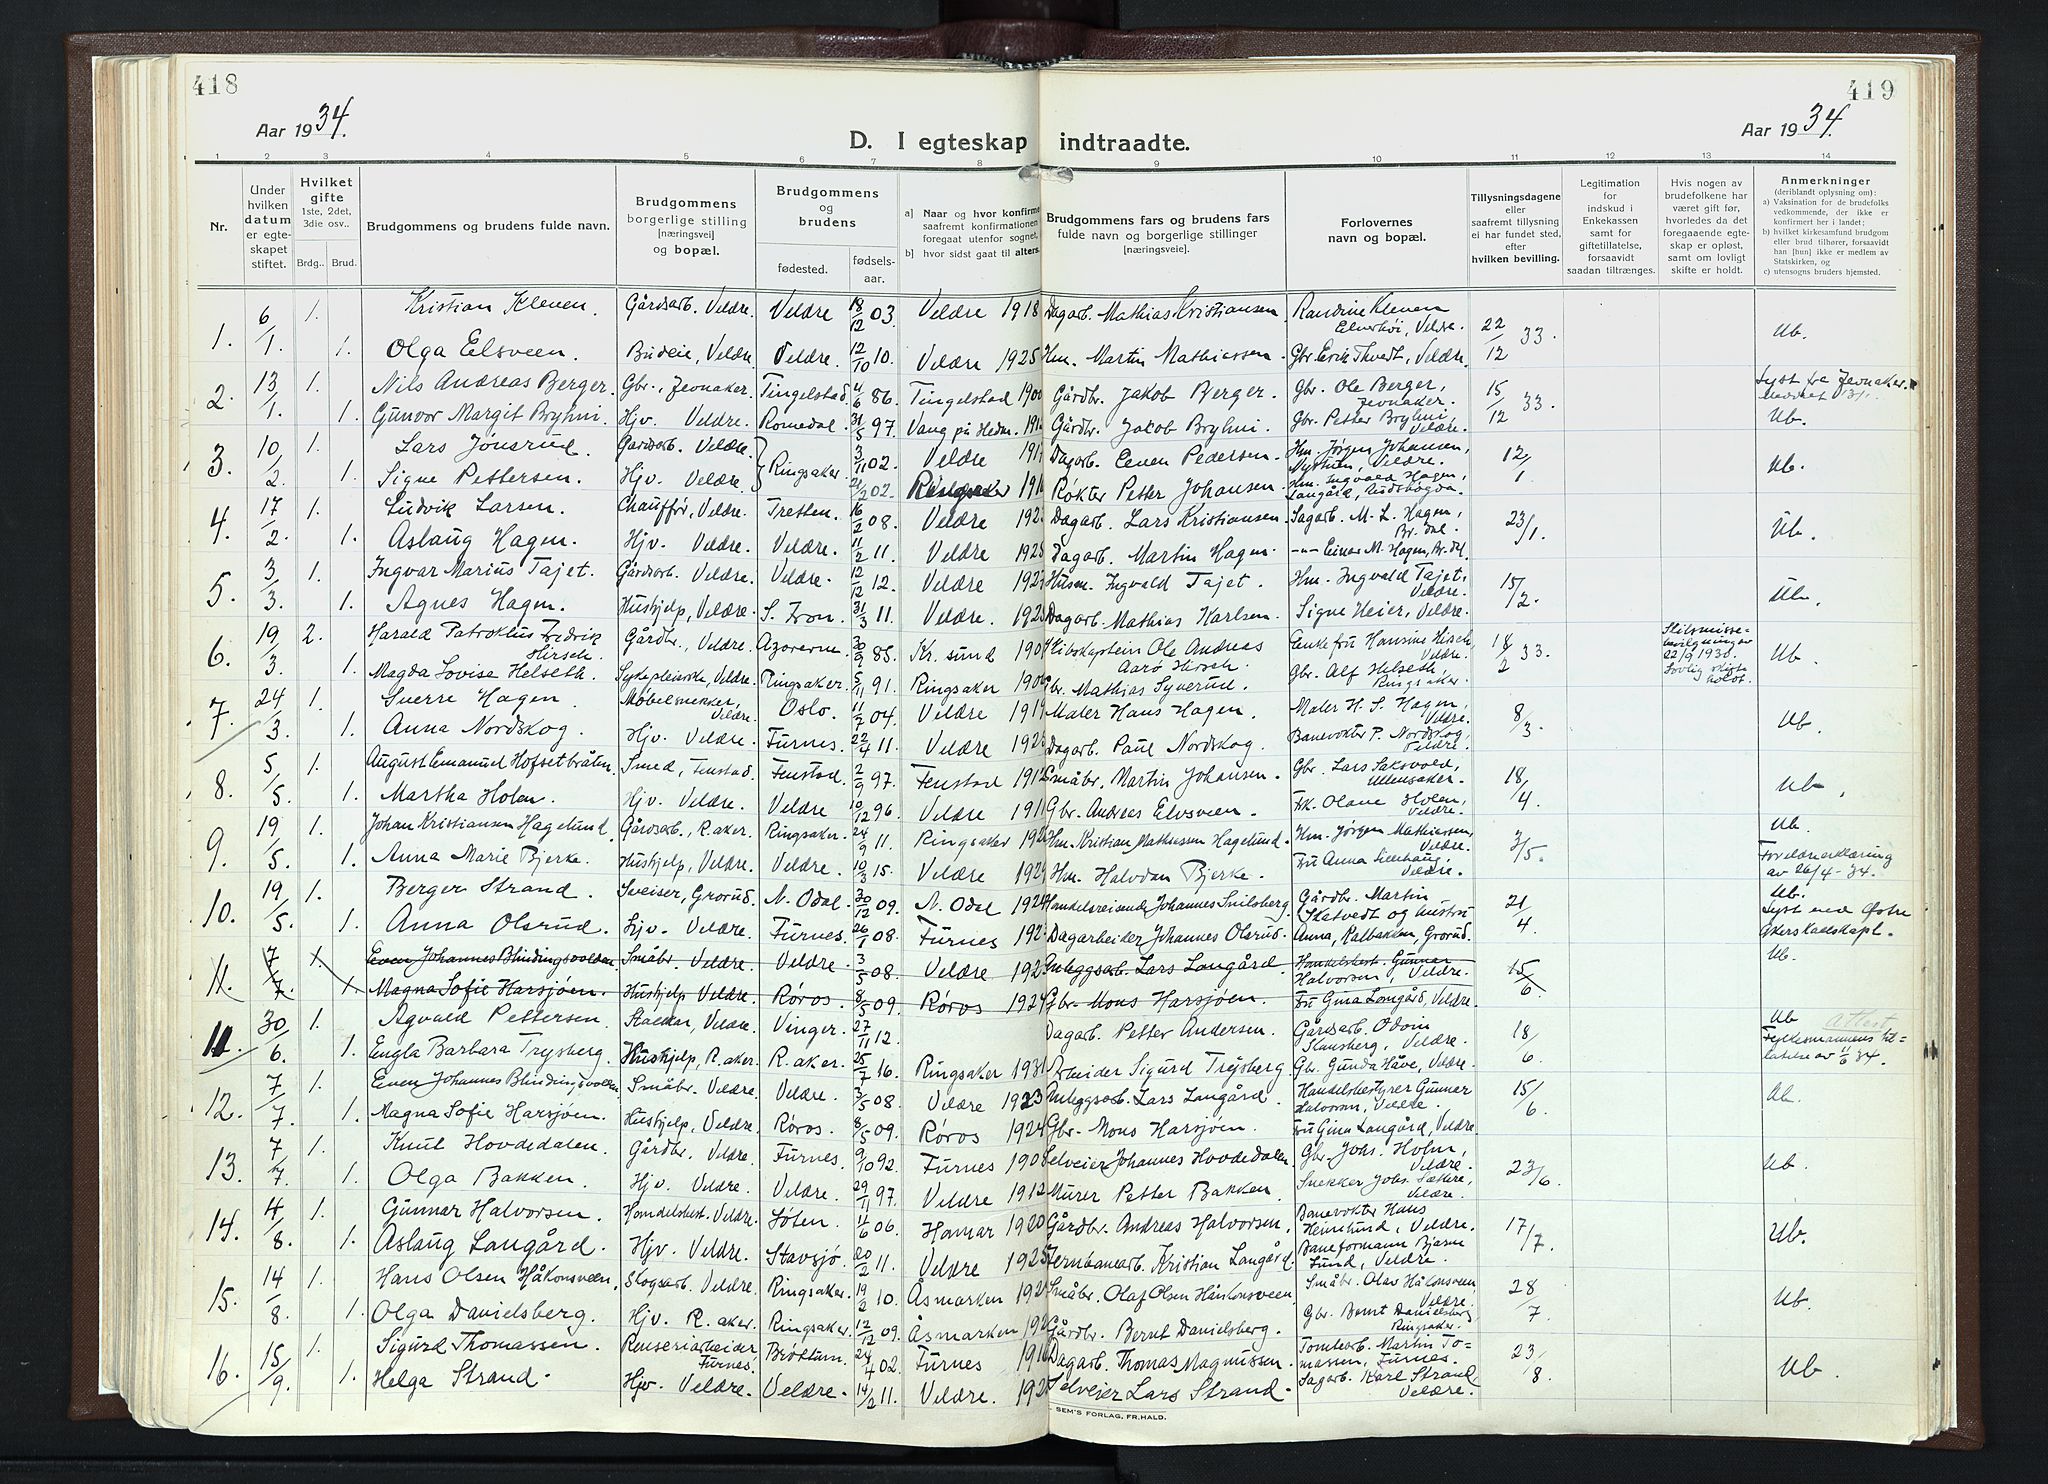 418
419
Aar 1934.
Aar 1934.
D. I egteskap indtraadte.
1 2 3 4 5 6 7 8 9 10 11 12 13 14
Nr.
Under hvilken datum er egteskapet stiftet.
Hvilket gifte 1ste, 2det, 3die osv..
Brdg.. Brud.
Brudgommens og brudens fulde navn.
Brudgommens borgerlige stilling [næringsvei] og bopæl.
Brudgommens og brudens
fødested. fødselsaar.
a) Naar og hvor konfirme saafremt konfirmationen foregaat utenfor sognet,
b) hvor sidst gaat til alters.
Brudgommens fars og brudens fars fulde navn og borgerlige stillinger [næringsveie].
Forlovernes navn og bopæl.
Tillysningsdagene eller saafremt tillysning ei har fundet sted, efter hvilken bevilling.
Legitimation for indskud i Enkekassen samt for giftetillatelse, forsaavidt saadan tiltrænges.
Hvis nogen av brudefolkene har været gift før, hvorledes da det foregaaende egteskap er opløst, samt om lovligt skifte er holdt.
Anmerkninger (deriblandt oplysning om):
a) Vaksination for de brudefolks vedkommende, der ikke er konfirmert her i landet;
b) hvilket kirkesamfund brudgom eller brud tilhører, forsaavidt han [hun] ikke er medlem av Statskirken, og
c) utensogns bruders hjemsted.
1. 6/1 1. Kristian Kleven. Gårdsarb. Veldre. Veldre 18/12 03. Veldre 1918 Dagarb. Mathias Kristiansen Randine Kleven Elverhøi, Veldre. 22/12 33. Ub.
1. Olga Elsveen. Budeie, Veldre Veldre. 12/10 10. Veldre 1925 Hm. Martin Mathiassen Gbr. Erik Thvedt, Veldre
2. 13/1 1. Nils Andreas Berger. Gbr., Jevnaker. Tingelstad. 4/6 86. Tingelstad 190 Gårdbr. Jakob Berger. Gbr. Ole Berger, Jevnaker. 15/12 33. Lyst fra Jevnaker.
1. Gunvor Margit Bryhni. Hjv. Veldre. Romedal. 31/5 97. Vang på Hedm. 191 Gårdbr. Jakob Bryhni. Gbr. Petter Bryhni, Veldre. Ub.
3. 10/2 1. Lars Jønsrud. Gårdsarb. Veldre. Ringsaker 3/11 02. Veldre 191 Dagarb. Even Pedersen. Hm. Jørgen Johansen, Nystuen, Veldre. 12/1 Ub.
1. Signe Pettersen. Hjv. Veldre. 02. Ringsaker 191 Røkter Petter Johansen. Hm. Ingvald Hagen, Langård,
4. 17/2 1. Ludvik Larsen. Chauffør, Veldre. Tretten. 16/2 08. Veldre 192 Dagarb. Lars Kristiansen Sagarb. M. L. Hagen, Br.dal. 23/1. Ub.
1. Aslaug Hagen. Hjv. Veldre. Veldre. 11/2 11. Veldre 1925 Dagarb. Martin Hagen. -"- Einar M. Hagen, Br.dal
5. 3/3. 1. Ingvar Marius Tajet. Gårdsarb. Veldre. Veldre. 12/12 12. Veldre 192 Husm. Ingvald Tajet. Hm. Ingvald Tajet. Veldre. 15/2. Ub.
1. Agnes Hagen. Hushjelp, Veldre. S. Fron. 31/3 11. Veldre. 192 Dagarb. Mathias Karlsen. Signe Heier, Veldre.
6. 19/3 2. Harald Patroklus Fredrik Hirsch. Gårdbr., Veldre. Azorerne. 30/9 85. Kr. sund 190 Skibskaptein Ole Andreas Aarø Hirsch. Enkefru Hansine Hirsch, Veldre. 18/2 33. Skilsmissebevilgning av 22/9 1930. Lovlig skifte holdt. Ub.
1. Magda Lovise Helseth. Sykepleierske, Veldre. Ringsaker. 5/11 91. Ringsaker 190 Gbr. Mathias Syverud. Gbr. Alf Helseth, Ringsaker.
7. 24/3. 1. Sverre Hagen. Møbelsnekker, Veldre. Oslo. 11/7 04. Veldre 1919 Maler Hans Hagen. Maler H. S. Hagen, Veldre. 8/3. Ub.
1. Anna Nordskog. Hjv. Veldre. Furnes. 22/4 11. Veldre 192 Dagarb. Paul Nordskog. Banevokter P. Nordskog, Veldre.
8. 5/5. 1. August Emanuel Hofsetbråten. Smed, Fenstad. Fenstad. 2/9 97. Fenstad 1912 Småbr. Martin Johansen. Gbr. Lars Saksvold, Ullensaker. 18/4. Ub.
1. Martha Holen. Hjv. Veldre. Veldre 10/12 96. Veldre 191 Gbr. Andreas Elvsveen. Frk. Olave Holen, Veldre.
9. 19/5. 1. Johan Kristiansen Hagelund. Gårdsarb., R.aker. Ringsaker. 24/9 11. Ringsaker 192 Hm. Kristian Mathiassen Hagelund. Hm. Jørgen Mathiassen, Veldre. 3/5. Ub.
1. Anna Marie Bjerke. Hushjelp, Veldre. Veldre. 10/3 15. Veldre 192 Hm. Halvdan Bjerke. Fru Anna Lillehaug, Veldre. Foreldreerklæring av 26/4-34.
10. 19/5. 1. Berger Strand. Sveiser, Grorud. N. Odal. 30/12 09. N. Odal 192 Handelsreisende Johannes Snilsberg. Gårdbr. Martin Skatvedt og hustru 21/4 Ub.
1. Anna Olsrud. Hjv. Veldre. Furnes. 26/1 08. Furnes 192 Dagarbeider Johannes Olsrud. Anna, Kalbakken, Grorud. Lyst ved Østre Akers ladeskapl.
11. 7/7. 1. Even Johannes Blindingsvolden. Småbr. Veldre. Veldre. 3/5 08. Veldre 192 Anleggsarb. Lars Langård. Handelsbest. Gunnar Halvorsen, Veldre. 15/6. Ub.
1. Magna Sofie Harsjøen. Hushjelp Veldre. Røros. 8/5 09. Røros 1924 Gbr. Mons Harsjøen. Fru Gina Langård, Veldre.
11. 30/6. 1. Agvald Pettersen. Stallkar, Veldre. Vinger. 27/11 12. Dagarb. Petter Andersen. Gårdsarb. Odvin Skansberg, Veldre. 18/6. Ub attest
1. Engla Barbara Trysberg. Hushjelp, R.aker. R.aker. 25/7 16. Ringsaker 1931 Arbeider Sigurd Trysberg. Gbr. Gunda Håve, Veldre. Fylkesmannens tillatelse av 11/6 34.
12. 7/7. 1. Even Johannes Blindingsvolden Småbr. Veldre. Veldre. 3/5 08. Veldre 1923 Anleggsarb. Lars Langård. Handelsbestyrer Gunnar Halvorsen, Veldre. 15/6. Ub.
1. Magna Sofie Harsjøen. Hushjelp, Veldre. Røros. 8/5 09. Røros 1924 Gbr. Mons Harsjøen. Fru Gina Langård, Veldre.
13. 7/7. 1. Knut Hovdedalen. Gårdbr. Veldre. Furnes. 9/10 92. Furnes 190 Selveier Johannes Hovdedalen. Gbr. Johs. Holm, Veldre. 23/6. Ub.
1. Olga Bakken. Hjv. Veldre. Veldre. 29/11 97. Veldre 1912 Murer Petter Bakken. Snekker Johs. Sætere, Veldre.
14. 4/8. 1. Gunnar Halvorsen. Handelsbest. Veldre. Løten. 11/6 06. Hamar 1920 Gårdbr. Andreas Halvorsen. Banevokter Hans Heimlund, Veldre. 17/7. Ub.
1. Aslaug Langård. Hjv. Veldre. Stavsjø. 20/2 11. Veldre 1925 Jernbanearb. Kristian Langård. Baneformann Bjarne Lund, Veldre.
15. 14/8. 1. Hans Olsen Håkonsveen. Skogsarb. Veldre. Ringsaker. 19/2 10. Åsmarken 192 Småbr. Olaf Olsen Håkonsveen. Småbr. Olav Håkonsveen, Veldre. 28/7 Ub.
1. Olga Danielsberg. Hjv. R.aker. Ringsaker. 12/12 09. Åsmarken 192 Gårdbr. Bernt Danielsberg. Gbr. Bernt Danielsberg Ringsaker.
16. 15/9. 1. Sigurd Thomassen. Renseriarbeider Furnes. Brøttum. 24/4 02. Furnes 191 Dagarb. Thomas Magnussen. Tomtearb. Martin Tomassen, Furnes. 23/8. Ub.
1. Helga Strand. Hjv. Veldre. Veldre. 14/2 11. Veldre. 192 Selveier Lars Strand. Sagarb. Karl Strand, Veldre.
SEM'S FORLAG, FR.HALD.